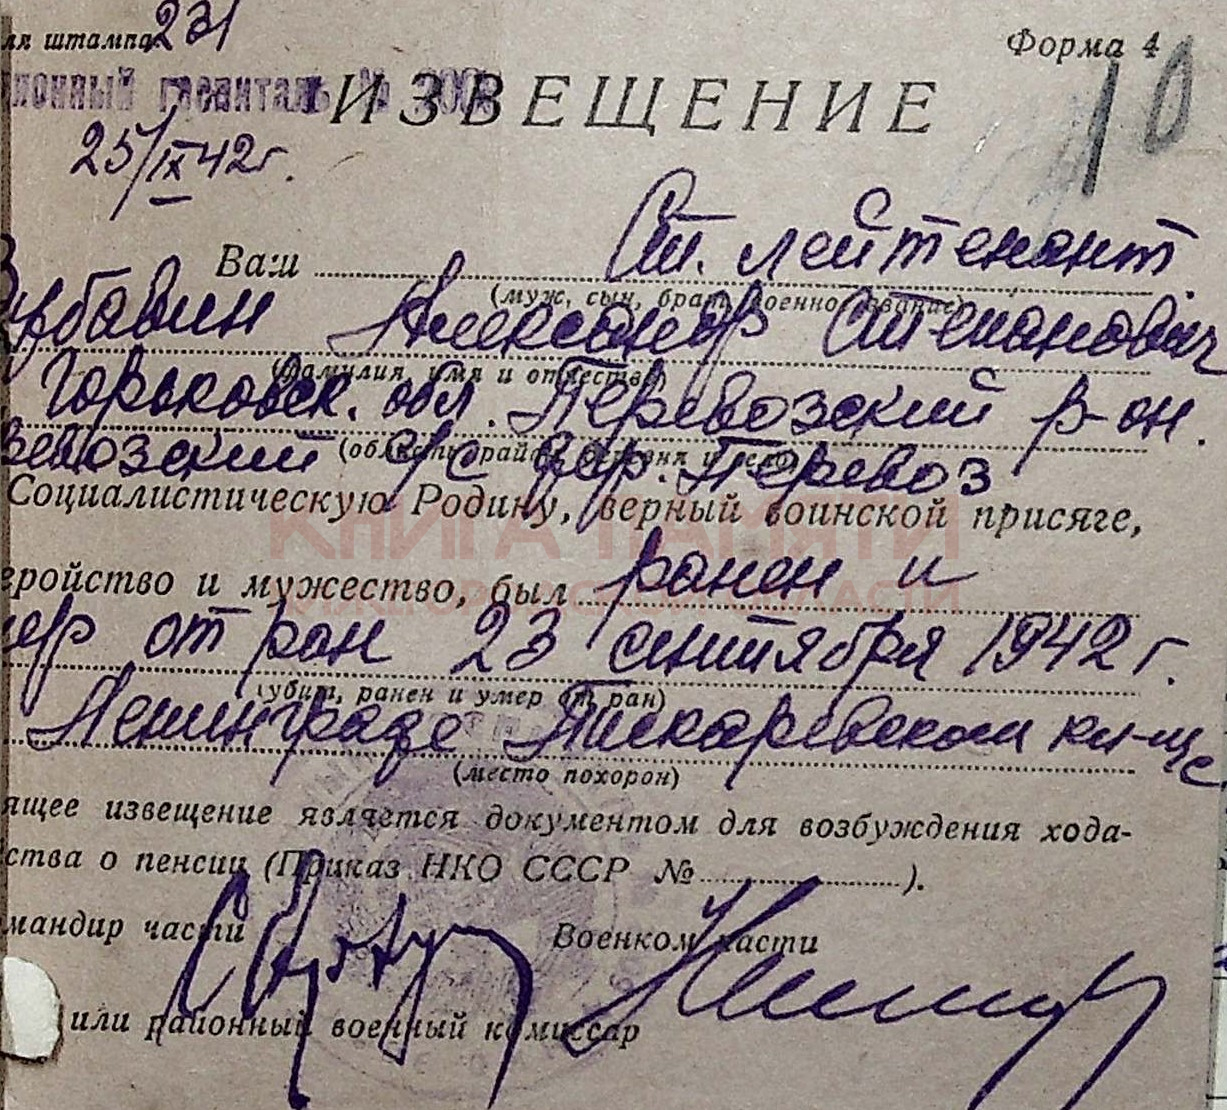 ля штампа 231
Форма 4
ионный госпиталь №
ИЗВЕЩЕНИЕ
10
25/IX 42г.
Ваш Ст. лейтенант
(муж, сын, брат, военное звание)
Александр Степанович
(фамилия, имя и отчество)
Горьковск. обл. Перевозский р-он.
(область, район, деревня и село)
евозский с/с дер. Перевоз
Социалистическую Родину, верный воинской присяге,
КНИГА ПАМЯТИ
НИЖЕГОРОДСКОЙ ОБЛАСТИ
еройство и мужество, был ранен и
мер от ран 23 сентября 1942 г.
(убит, ранен и умер от ран)
Ленинграде Пискаревском кл-ще
(место похорон)
ящее извещение является документом для возбуждения хода-
ства о пенсии (Приказ НКО СССР № ).
мандир части
Военком части
или районный военный комиссар